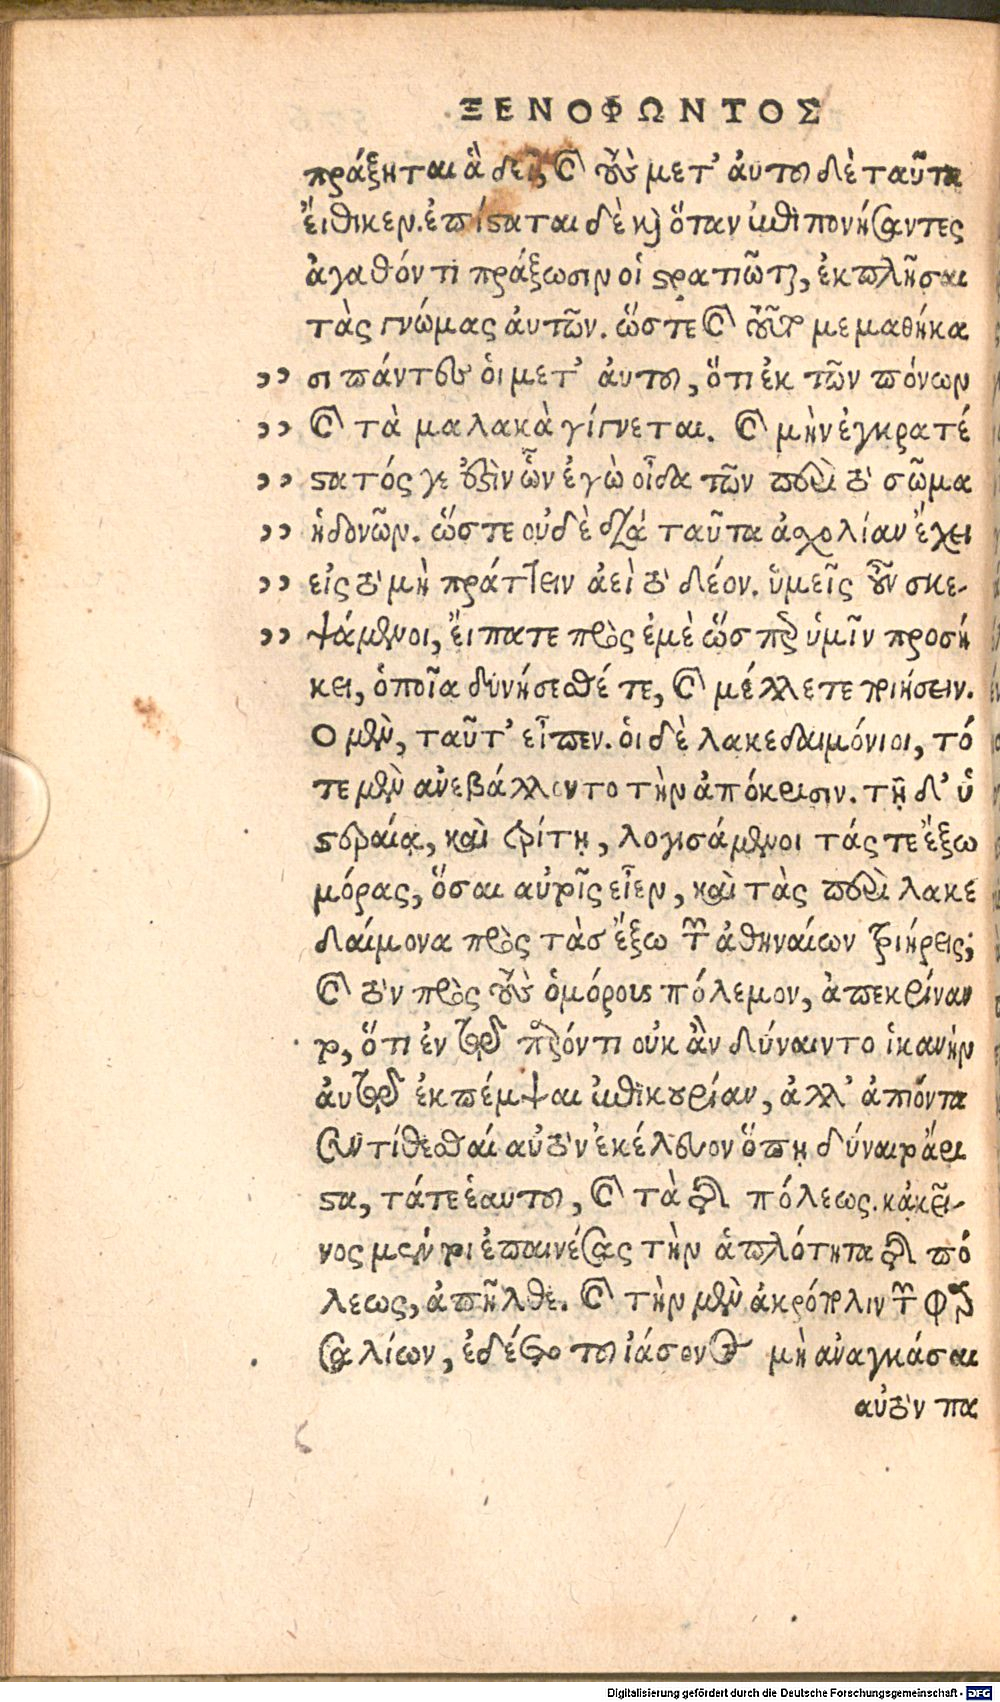 ΞΕΝΟΦΩΝΤΟΣ
πράξηται ἃ δεῖ, καὶ τοὺς μετ' αὐτοῦ δὲ ταῦτα
εἴθικεν. ἐπίσταται δὲ καὶ ὅταν ἐπιπονήσαντες
ἀγαθόν τι πράξωσιν οἱ στρατιῶται, ἐκπλῆσαι
τὰς γνώμας αὐτῶν. ὥστε καὶ τοῦτο μεμαθήκα
,, σι πάντες οἱ μετ' αὐτοῦ, ὅτι ἐκ τῶν πόνων
,, καὶ τὰ μαλακὰ γίγνεται. καὶ μὴν ἐγκρατέ
,, στατός γε ἐστὶν ὧν ἐγὼ οἶδα τῶν περὶ τὸ σῶμα
,, ἡδονῶν. ὥστε οὐδὲ διὰ ταῦτα ἀσχολίαν ἔχει
,, εἰς τὸ μὴ πράττειν ἀεὶ τὸ δέον. ὑμεῖς οὖν σκε-
,, ψάμενοι, εἴπατε πρὸς ἐμὲ ὥσπερ ὑμῖν προσή
κει, ὁποῖα δυνήσεσθέ τε, καὶ μέλλετε ποιήσειν.
Ὁ μὲν, ταῦτ' εἶπεν. οἱ δὲ λακεδαιμόνιοι, τό
τε μὲν ἀνεβάλλοντο τὴν ἀπόκρισιν. τῇ δ' ὑ
στεραίᾳ, καὶ τρίτῃ, λογισάμενοι τάς τε ἔξω
μόρας, ὅσαι αὐτοῖς εἶεν, καὶ τὰς περὶ λακε
δαίμονα πρὸς τὰς ἔξω τῶν ἀθηναίων τριήρεις,
καὶ τὸν πρὸς τοὺς ὁμόρους πόλεμον, ἀπεκρίναν
το, ὅτι ἐν τῷ παρόντι οὐκ ἂν δύναιντο ἱκανὴν
αὐτῷ ἐκπέμψαι ἐπικουρίαν, ἀλλ' ἀπιόντα
συντίθεσθαι αὐτὸν ἐκέλευον ὅπῃ δύναιτο ἄρι
στα, τά τε ἑαυτοῦ, καὶ τὰ τῆς πόλεως. κἀκεῖ-
νος μέν τοι ἐπαινέσας τὴν ἁπλότητα τῆς πό
λεως, ἀπῆλθε. καὶ τὴν μὲν ἀκρόπολιν τῶν φαρ
σαλίων, ἐδέετο τοῦ ἰάσονος μὴ ἀναγκάσαι
αὐτὸν πα
Digitalisierung gefördert durch die Deutsche Forschungsgemeinschaft - DFG